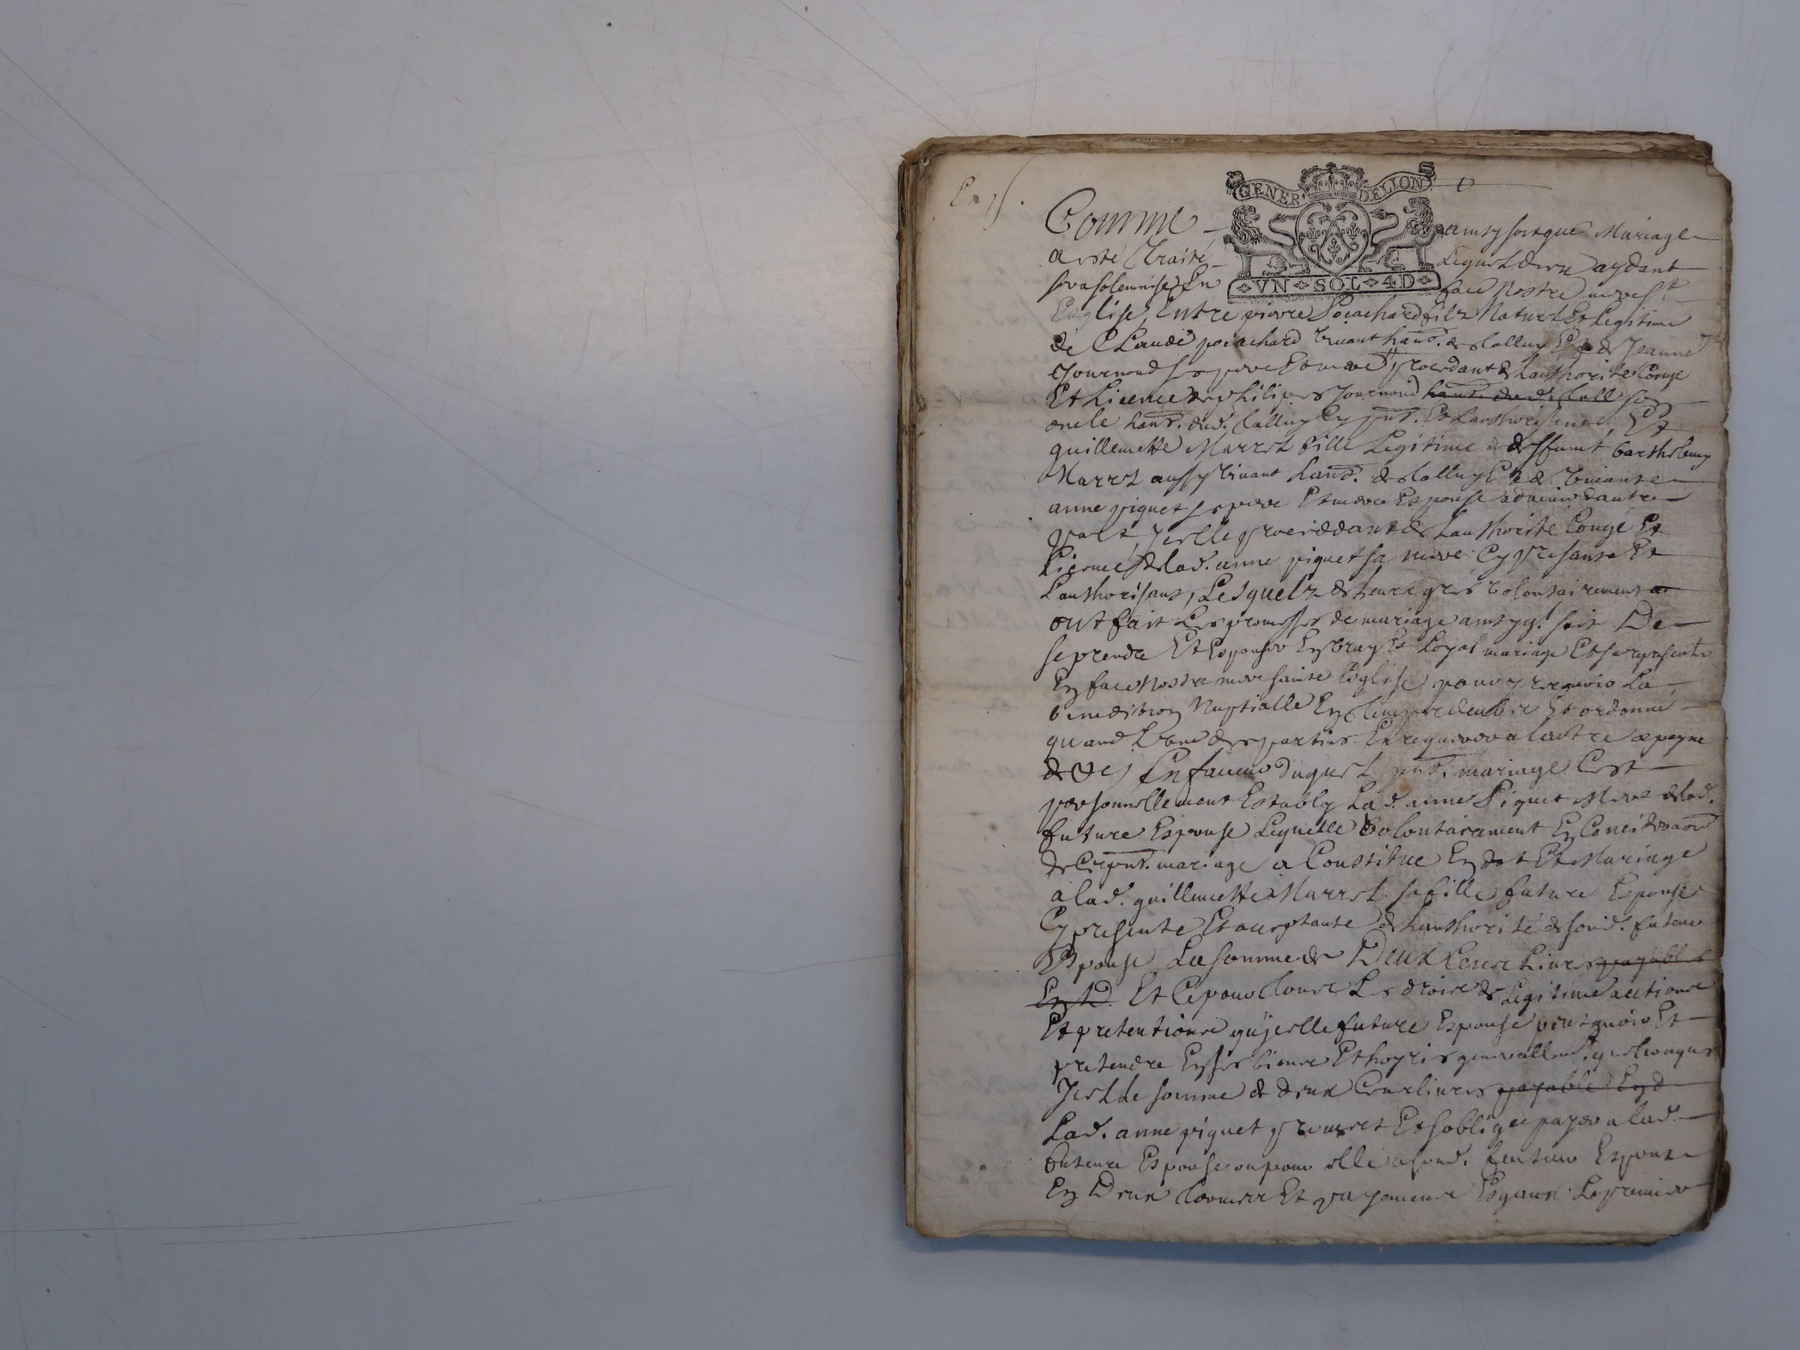 Exp.
GENER DELION
VN SOL 4D
Comme ainsy soit que Mariage
a esté Traité Lequel dieu aydant
sera solemnisé En face nostre mere ste
Esglise, Entre pierre filz Naturel Et Legitime
de Claude vivant hant. de Et de Jeanne
ses pere Et mere procedant de Lauthorite Conge
Et Licence de philipes son
oncle hant. dud. Cy pnt. Et Lauthorisant Et
guillemette Marrel fille Legitime de deffunt barthelemy
Marrel aussy vivant hant. de Et de vivante
anne piquet ses pere Et mere Espouse advenir dautre
part, Jcelle procedant de Lauthorité Conge Et
Licence de lad. anne piquet sa mere Cy presante Et
Lauthorisant, Lesquelz de leurs grés volontairement
ont fait Les promesses de mariage ainsy q. soit De
se prendre Et Espouser En vray Et Loyal mariage Et se representer
En face Nostre mere sainte Esglise pour y recepvoir La
benediction Nuptialle En temps deub Et ordonné
quand Lune des parties En requerera lautre a peyne
de &c, En faveur duquel pnt. mariage Cest
personnellement Establÿ Lad. anne Piquet Mere delad.
future Espouse Laquelle volontairement En Concideraon
de Ce pnt. mariage a Constitue En dot Et Mariage
a lad. guillemette Marrel sa fille future Espouse
Cy presente Et acceptante de Lauthorité de sond. futeur
Espoux La somme de Deux Cens Livres payables
En d. Et Ce pour tous Les droits de Legitime actions
Et pretentions qu'jcelle future Espouse peut avoir Et
pretendre En ses biens Et hoyries generallemt. quelconques
Jcelle somme de deux Cens livres payable En d
Lad. anne piquet promet Et soblige payer a lad.
future Espouse ou pour elle a sond. futeur Espoux
En Deux termes Et payements Esgaux Le premier